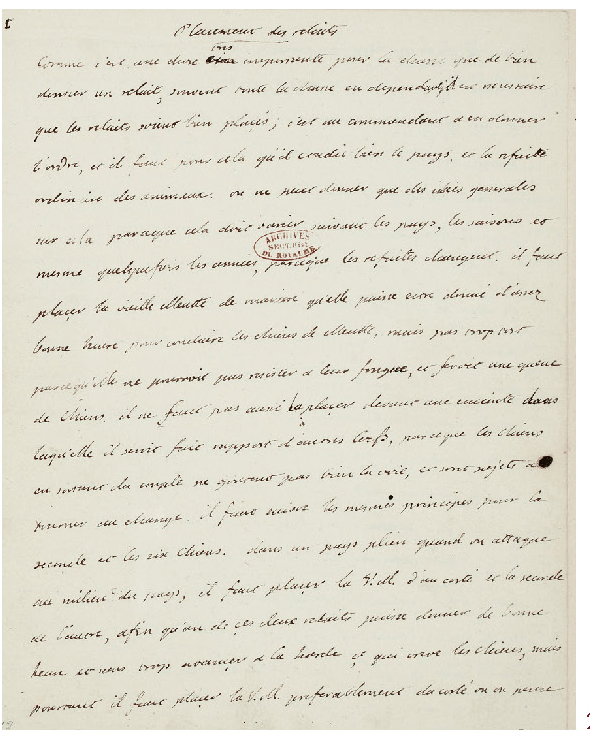 Placement des relaits
Comme c'est une chose tres importante pour la chasse que de bien
donner un relait, souvent toute la chasse en dépend, il est necessaire
que les relaits soient bien placés; c'est au commandant a en donner
l'ordre, et il faut pour cela qu'il étudie bien le pays, et la refuitte
ordinaire des animeaux. on ne peut donner que des idées generales
sur cela parceque cela doit varier suivant les pays, les saisons et
ARCHIVES
SECTION
DU ROYAUME
mesme quelquefois les années, parceque les refuittes changent. il faut
placer la vieille Meutte de maniere qu'elle puisse estre donné d'assez
bonne heure pour soulaire les chiens de Meutte, mais pas trop tost
parcequ'elle ne pourroit pas resister a leur fougue, et feroit une queue
de Chiens. il ne faut pas aussi la placer devant une enceinte dans
laquelle il seroit fait rapport d'autres Cerfs, parceque les Chiens
en sortant du couple ne goutent pas bien la voie, et sont sujets a
tourner au change. il faut suivre les mesmes principes pour la
seconde et les six Chiens. dans un pays plein quand on attaque
au milieu du pays, il faut placer la V.M. d'un costé et la seconde
de l'autre, afin qu'un de ces deux relaits puisse donner de bonne
heure et sans trop avancer a la horde ce qui creve les Chiens, mais
pourtant il faut placer la V.M. preferablement du costé ou on pense